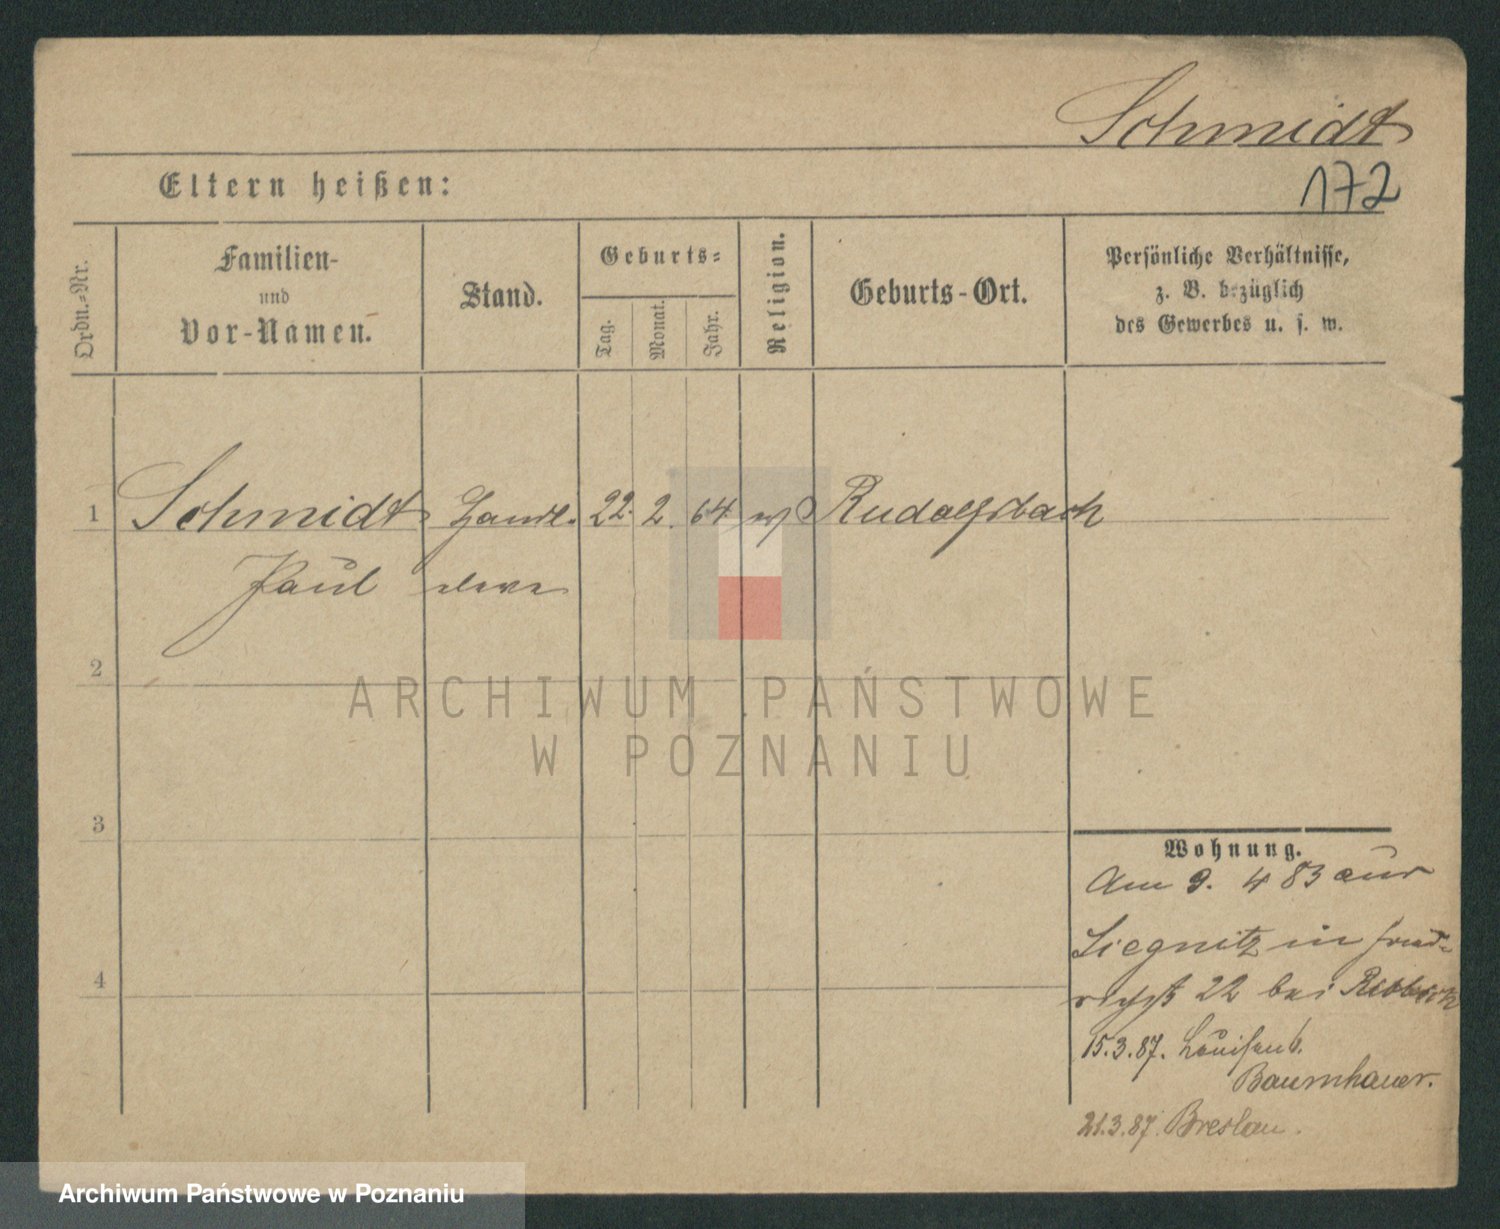 Schmidt
172
Eltern heißen:
Ordn.-Nr.
Familien-
und
Vor-Namen.
Stand.
Geburts-
Tag.
Monat.
Jahr.
Religion.
Geburts-Ort.
Persönliche Verhältnisse,
z. B. bezüglich
des Gewerbes u. s. w.
1 Schmidt Handl. 22. 2. 64 Rudolfsbach
Paul
2
3
4
Wohnung.
Am 9. 4 83 aus
Liegnitz in Fried-
richst 22 bei
15.3.87. Louisenst.
Baumhauer.
21.3.87. Breslau.
ARCHIWUM PAŃSTWOWE
W POZNANIU
Archiwum Państwowe w Poznaniu